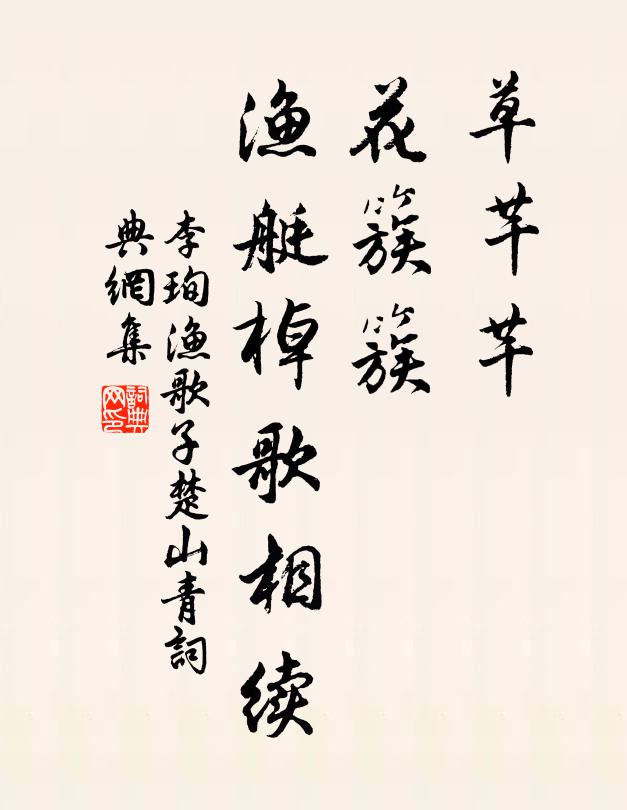 草芊芊
花簇簇
渔艇棹歌相续
李珣渔歌子楚山青詞
典網集
詞典
网印